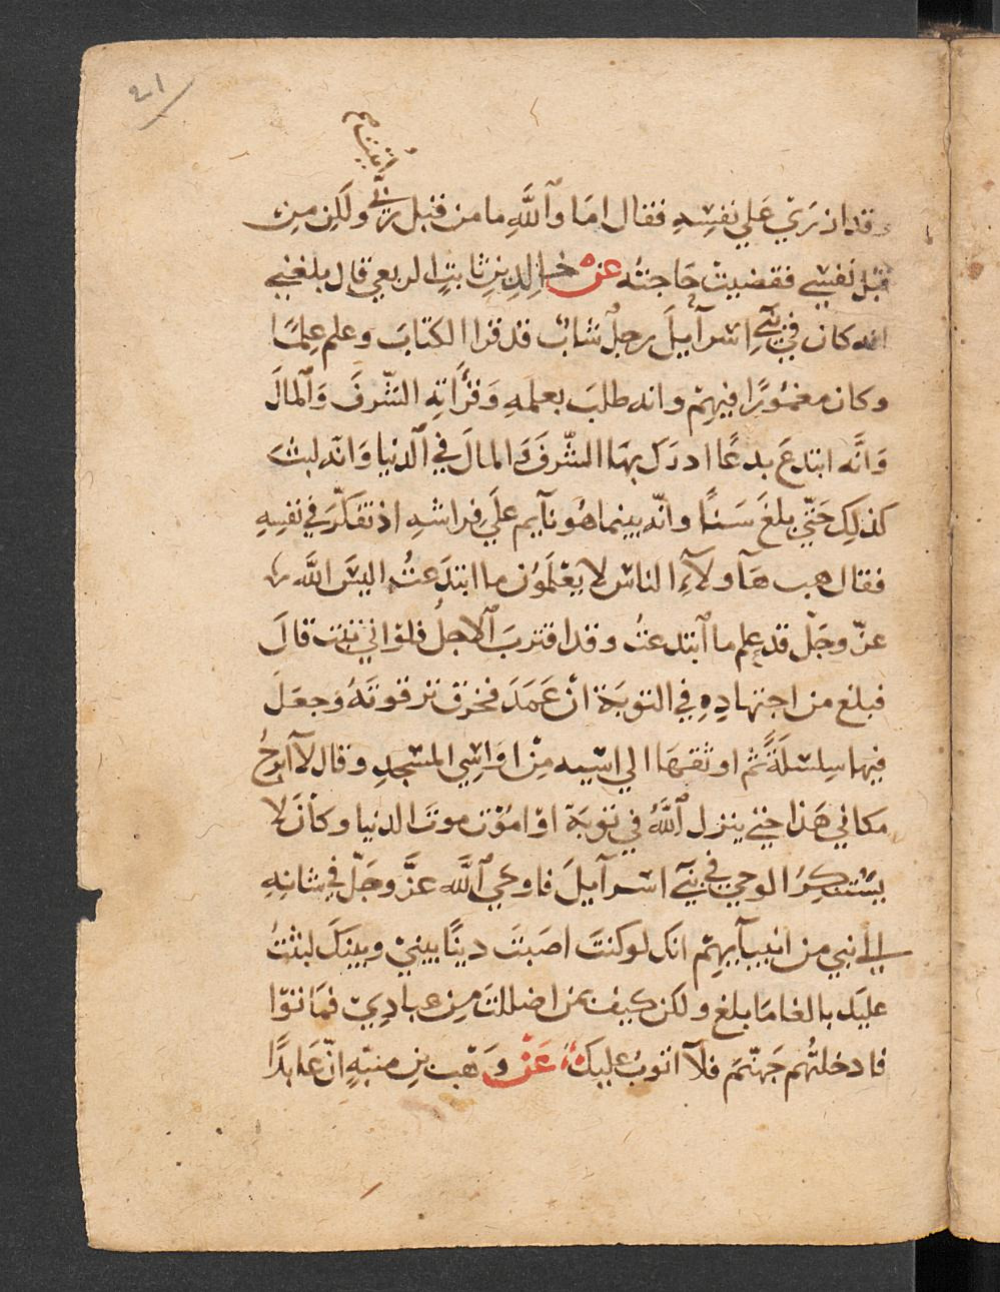 ٢١
أتيت صح
وقد ازرَيْ عَلي نفسِهِ فقال امَا وَٱللَّهِ ما من قبل ربّي ولَكِن مِن
قبل نَفسْي فقضيتْ حَاجتهُ عنْ خالِدِ بنِ ثابتٍ الربعي قال بلغني
انه كان في بَنِي اسْرآئيلَ رجلٌ شابٌ قد قرا الكتابَ وعلم عِلمًا
وكان مغمُوْرًا فيهِمْ وانه طلبَ بعلمهِ وَقرَأتهِ الشّرفَ وَٱلمالَ
وَانَّه ابتدعَ بدعًا ادرَك بهَا الشّرفَ وَالمالَ في ٱلدنيا وَانّه لبثَ
كذلِكَ حَتّي بلغَ سَنًا وانّه بينما هُو نآيم علَي فراشهِ اذ تفكّرَ في نفسِهِ
فقال هب هَآولآءِ الناسْ لا يعْلَموُن ما ابتدَعتُ اليسَ اللَّه
عزّ وجَلّ قد علم ما ٱبتدعتُ وقد اقتربَ ٱلاجلُ فلو اني تبت قالَ
فبلغ من اجتهادِهِ في التوبَة انْ عَمَدَ فخرق ترقوتَهُ وَجعَلَ
فيها سِلسْلَةً ثم اوثقهَا الي اسْيه مِنْ اوَاسِي المسْجدِ وقال لآ ابرحُ
مكاني هَذا حَتي ينزل ٱللَّهُ في توبَة اوْ امُوْت موتَ الدنيا وكاْنَ لا
يسْتنكِرُ الوحيَ في بَنِي اسرآيلَ فاوحَي ٱللَّه عزَّ وجَلّ في شانِهِ
الي نبي من انبيآيهِمْ انك لو كنتَ اصَبتَ دينًا بينيْ وبينكَ لتبْتُ
عليَك بالغا مَا بلغ ولكن كيف بمن اضللتَ مِن عبادِيْ فمَاتوْا
فادخلتُهم جَهنّمَ فلآ اتوبُ عليكَ عَنْ وَهْب بن منبّهٍ انّ عَابدًا